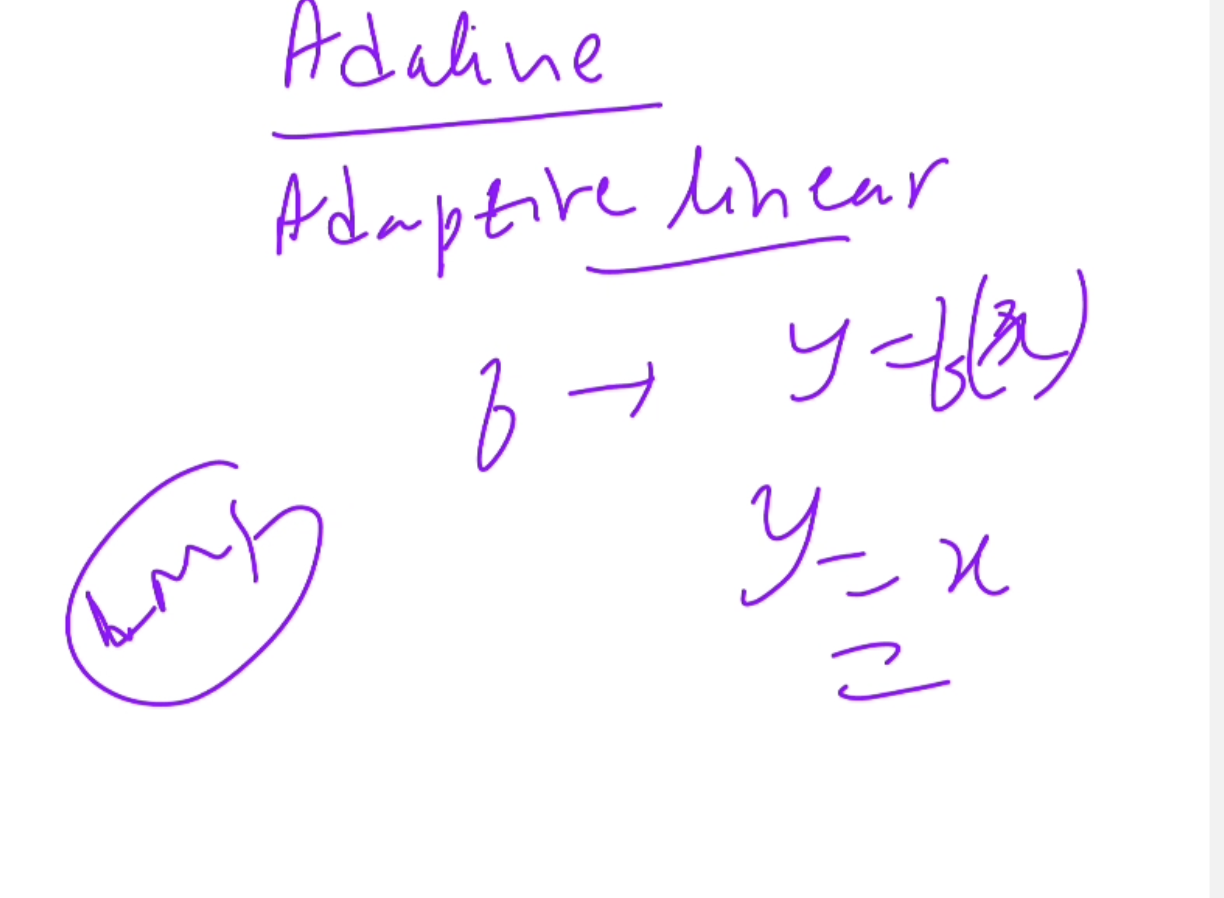 Adaline
Adaptive linear
f → y = f(x)
LMS
y = x